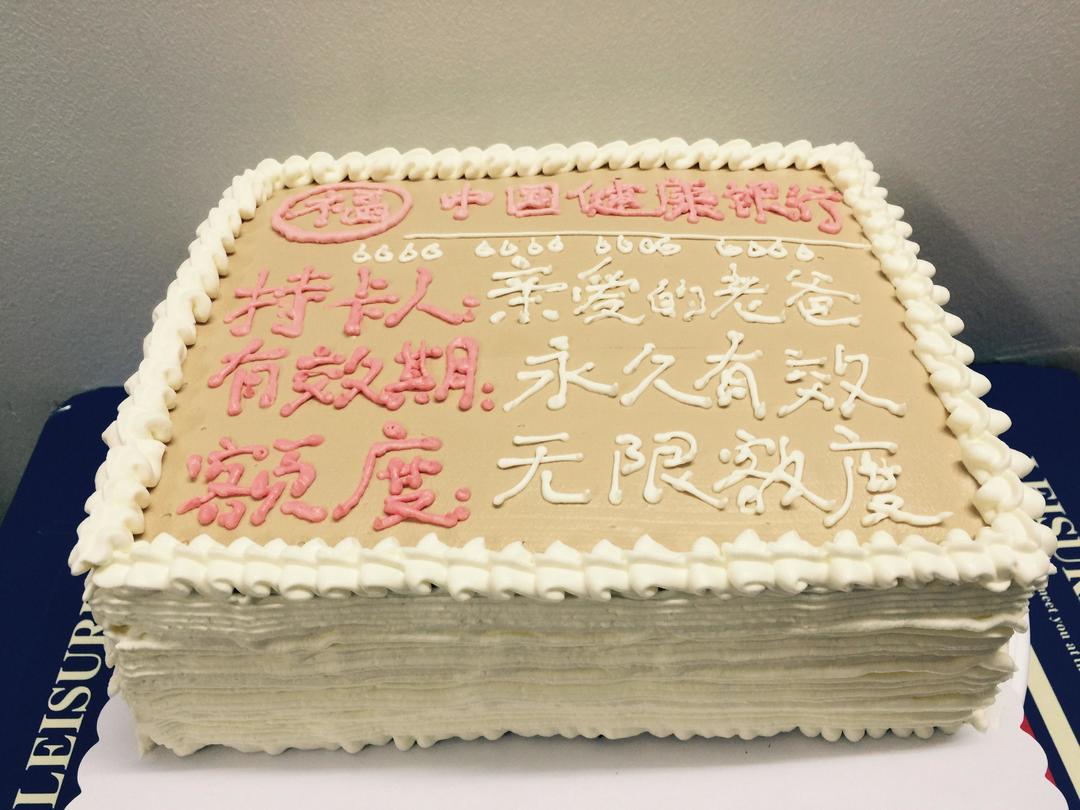 福 中国健康银行
6666 6666 6606 6666
持卡人: 亲爱的老爸
有效期: 永久有效
额度: 无限额度
LEISURE
LEISURE
meet you at